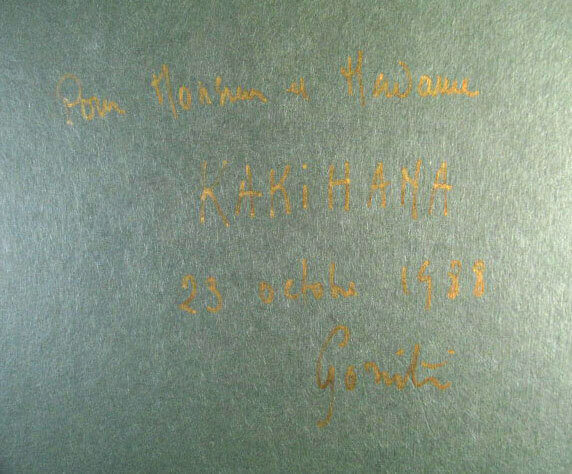 Pour Monsieur et Madame
KAKiHANA
23 octobre 1988